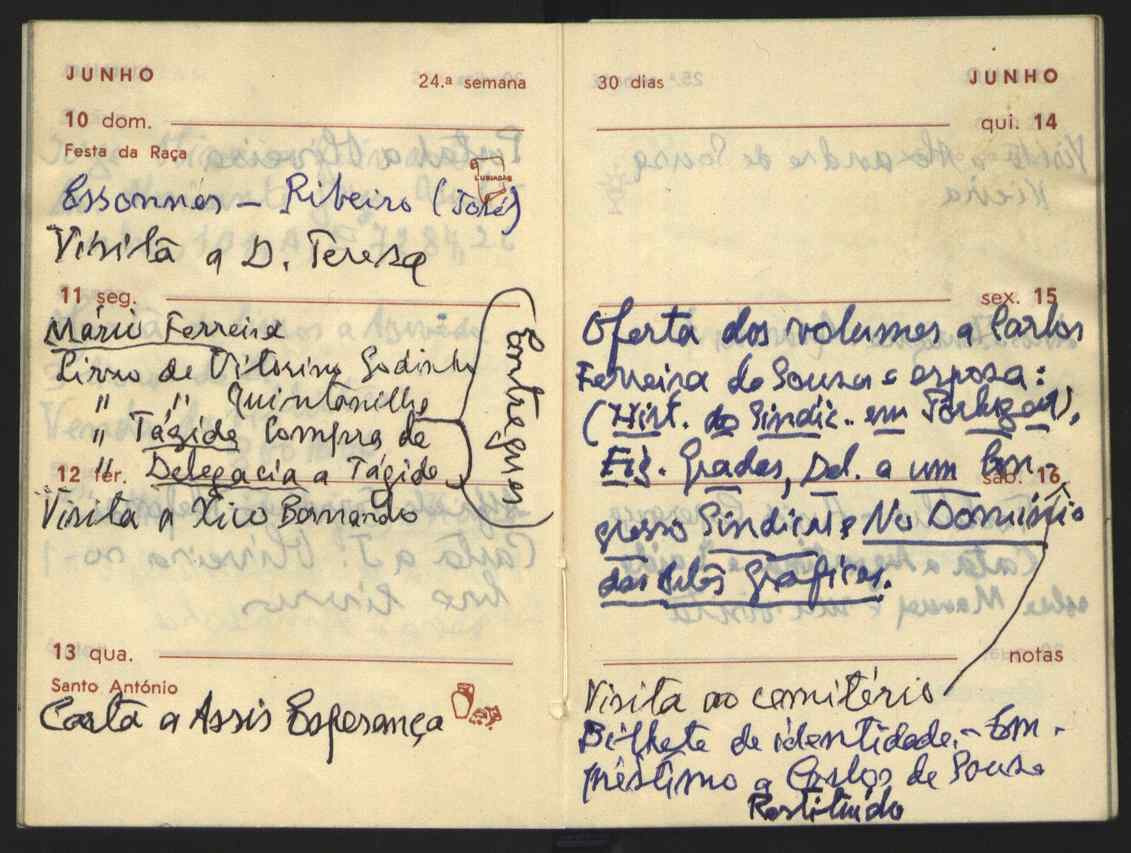 JUNHO 24.ª semana
10 dom.
Festa da Raça
LUSIADAS
Essonnes – Ribeiro (José)
Visita a D. Teresa
11 seg.
Mário Ferreira
Livro de Vitorino Godinho
" " Quintanilha
" Tágide Compra de
12 ter. " Delegacia a Tágide
Entregues
Visita a Xico Bernardo
13 qua.
Santo António
Carta a Assis Esperança
30 dias JUNHO
qui. 14
sex. 15
Oferta dos volumes a Carlos
Ferreira de Sousa e esposa:
(Hist. do Sindic.. em Portugal),
Fig. Gradas, Del. a um Con-
sáb. 16
gresso Sindical e No Domínio
das Artes Gráficas.
notas
Visita ao cemitério
Bilhete de identidade. – Em-
préstimo a Carlos de Sousa
Restituído